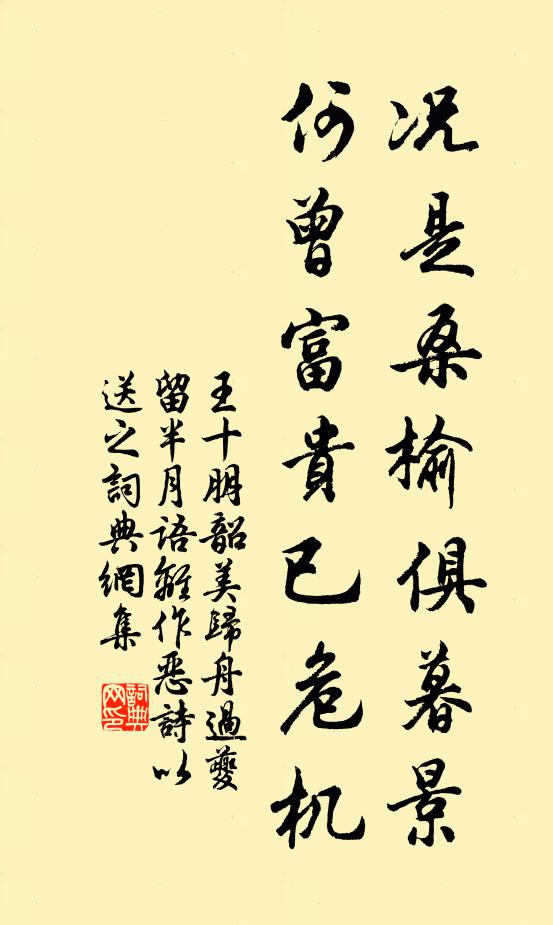 况是桑榆俱暮景
何曾富貴已危机
王十朋韶美歸舟過夔
留半月語離作惡詩以
送之詞典網集
詞典
网印